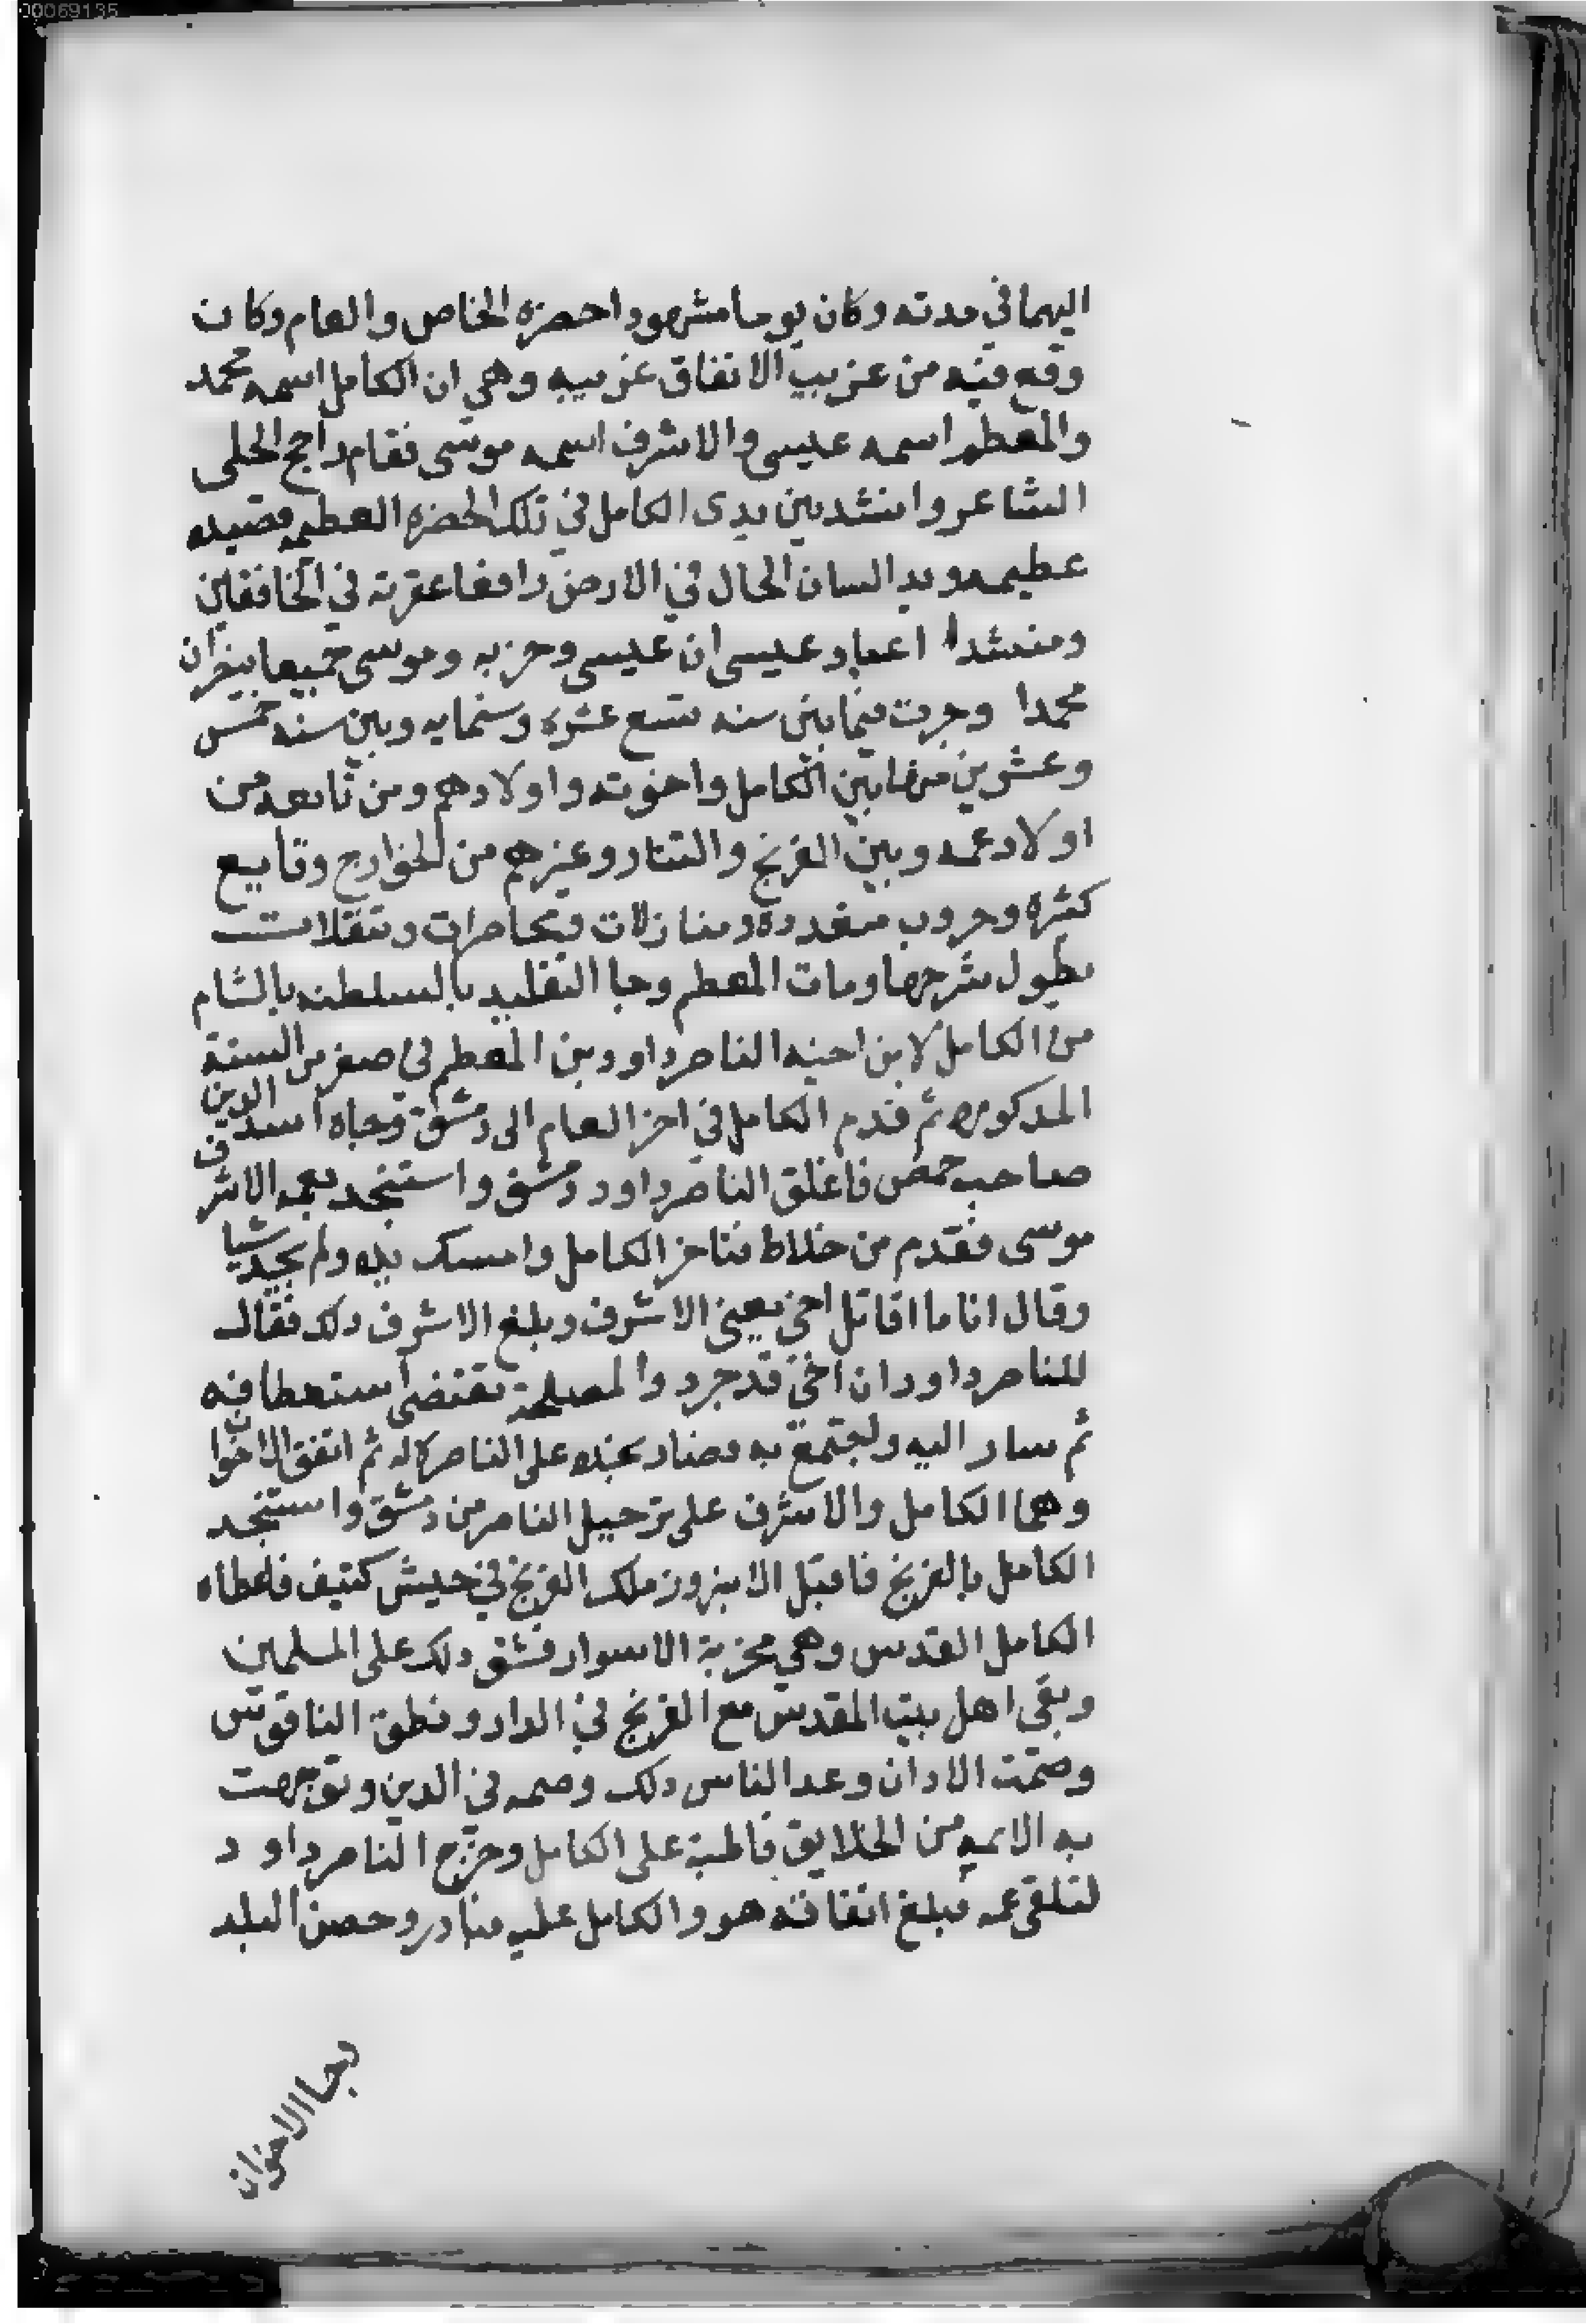 00069135
اليهما في مدته وكان يوما مشهودا حضره الخاص والعام وكان
وقع فيه من غريب الاتفاق غريبه وهي ان الكامل اسمه محمد
والمعظم اسمه عيسى والاشرف اسمه موسى فقام راجح الحلى
الشاعر وانشد بين يدى الكامل في تلك الحضره العظيمه قصيده
عظيمه وبدا لسان الحال في الارض رافعا عقرته في الخافقين
ومنشدا اعباد عيسى ان عيسى وحزبه وموسى جميعا ينصران
محمدا وجرت فيما بين سنه تسع عشره وستمايه وبين سنه خمس
وعشرين منها بين الكامل واخوته واولادهم ومن تابعه من
اولاد عمه وبين الفرنج والتتار وغيرهم من الخوارج وقايع
كثيره وحروب متعددة ومنازلات ومحاصرات وتنقلات
يطول شرحها ومات المعظم وجا التقليد بالسلطنه بالشام
من الكامل لابن اخيه الناصر داود بن المعظم في صفر من السنة
المدكوره ثم قدم الكامل في اخر العام الى دمشق وجاه اسد الدين
صاحب حمص فاغلق الناصر داود دمشق واستنجد بعمه الاشرف
موسى فقدم من خلاط فتاخر الكامل وامسك يده ولم يجد شيا
وقال انا ما اقاتل اخي يعني الاشرف وبلغ الاشرف دلك فقال
للناصر داود ان اخي قد جرد والمصلحة تقتضى استعطافه
ثم سار اليه واجتمع به وصار عنده على الناصر لا له ثم اتفق الاخوان
وهما الكامل والاشرف على ترحيل الناصر من دمشق واستنجد
الكامل بالفرنج فاقبل الانبرور ملك الفرنج في جيش كثيف فاعطاه
الكامل القدس وهي مخربة الاسوار فشق دلك على المسلمين
وبقي اهل بيت المقدس مع الفرنج في الدار ونطق الناقوس
وصمت الادان وعد الناس دلك وصمه في الدين وتوجهت
به الايمه من الخلايق قاطبة على الكامل وخرج الناصر داود
لتلقى عمه فبلغ اتفاقه هو والكامل عليه فبادر وحصن البلد
فجا الاخوان